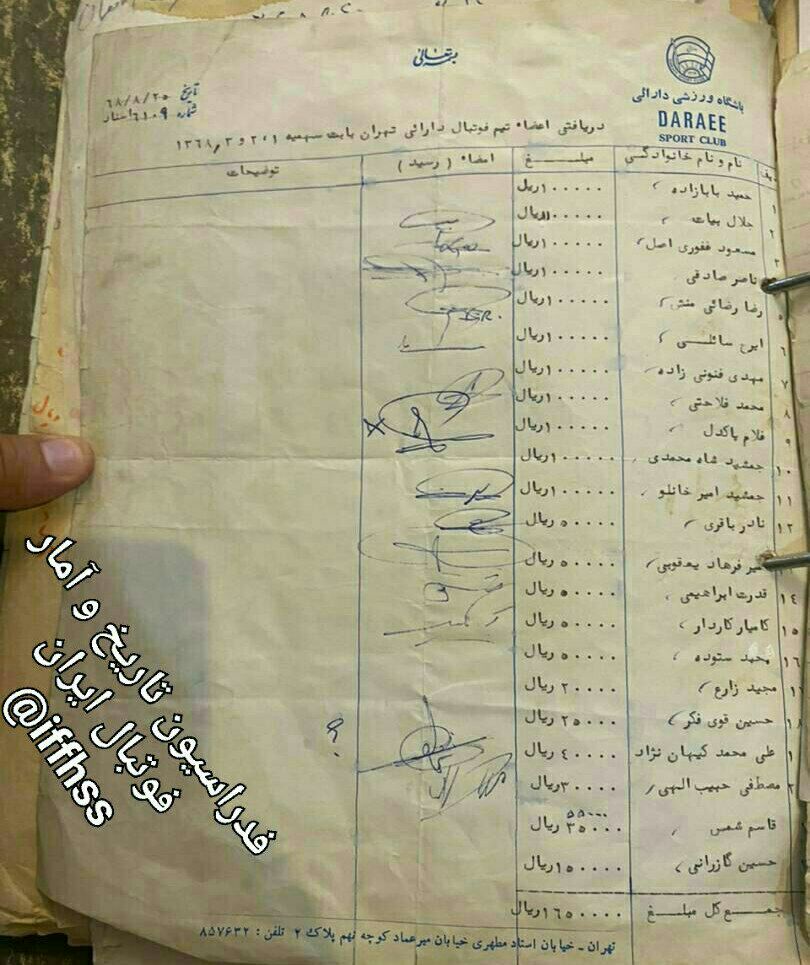 بسمه تعالی
باشگاه ورزشی دارائی
DARAEE
SPORT CLUB
تاریخ ۶۸/۸/۲۵
شماره ۶۱۰۹
دریافتی اعضاء تیم فوتبال دارائی تهران بابت سهمیه ۱،۲ و ۱۳۶۸٫۳
ردیف نام و نام خانوادگی مبلغ امضاء ( رسید ) توضیحات
۱ حمید بابازاده ۱۰۰۰۰۰ریال
۲ جلال بیات ریال
۳ مسعود غفوری اصل ۱۰۰۰۰۰ریال
ناصر صادقی ۱۰۰۰۰۰ریال
۵ رضا رضائی منش ۱۰۰۰۰۰ریال
۶ ایرج سائلی ۱۰۰۰۰۰ریال
۷ مهدی فنونی زاده ۱۰۰۰۰۰ریال
۸ محمد فلاحتی ۱۰۰۰۰۰ریال
۹ غلام پاکدل ۱۰۰۰۰۰ریال
۱۰ جمشید شاه محمدی ۱۰۰۰۰۰ریال
۱۱ جمشید امیر خانلو ۱۰۰۰۰۰ریال
۱۲ نادر باقری ۵۰۰۰۰ ریال
امیر فرهاد یعقوبی ۵۰۰۰۰ ریال
۱۴ قدرت ابراهیمی ۵۰۰۰۰ ریال
۱۵ کامیار کاردار ۵۰۰۰۰ ریال
۱۶ محمد ستوده ۵۰۰۰۰ ریال
۱ مجید زارع ۲۰۰۰۰ ریال
۱۸ حسین قوی فکر ۲۵۰۰۰ ریال ؟
۱ علی محمد کیهان نژاد ۴۰۰۰۰ ریال
۲ مصطفی حبیب الهی ۳۰۰۰۰ریال
۵۵۰۰۰
قاسم شمس ۳۵۰۰۰ ریال
حسین گازرانی ۱۵۰۰۰ریال
جمع کل مبلغ ۱۶۵۰۰۰۰ریال
تهران - خیابان استاد مطهری خیابان میرعماد کوچه نهم پلاک ۲ تلفن : ۸۵۷۶۳۲
فدراسیون تاریخ و آمار
فوتبال ایران
@iffhss